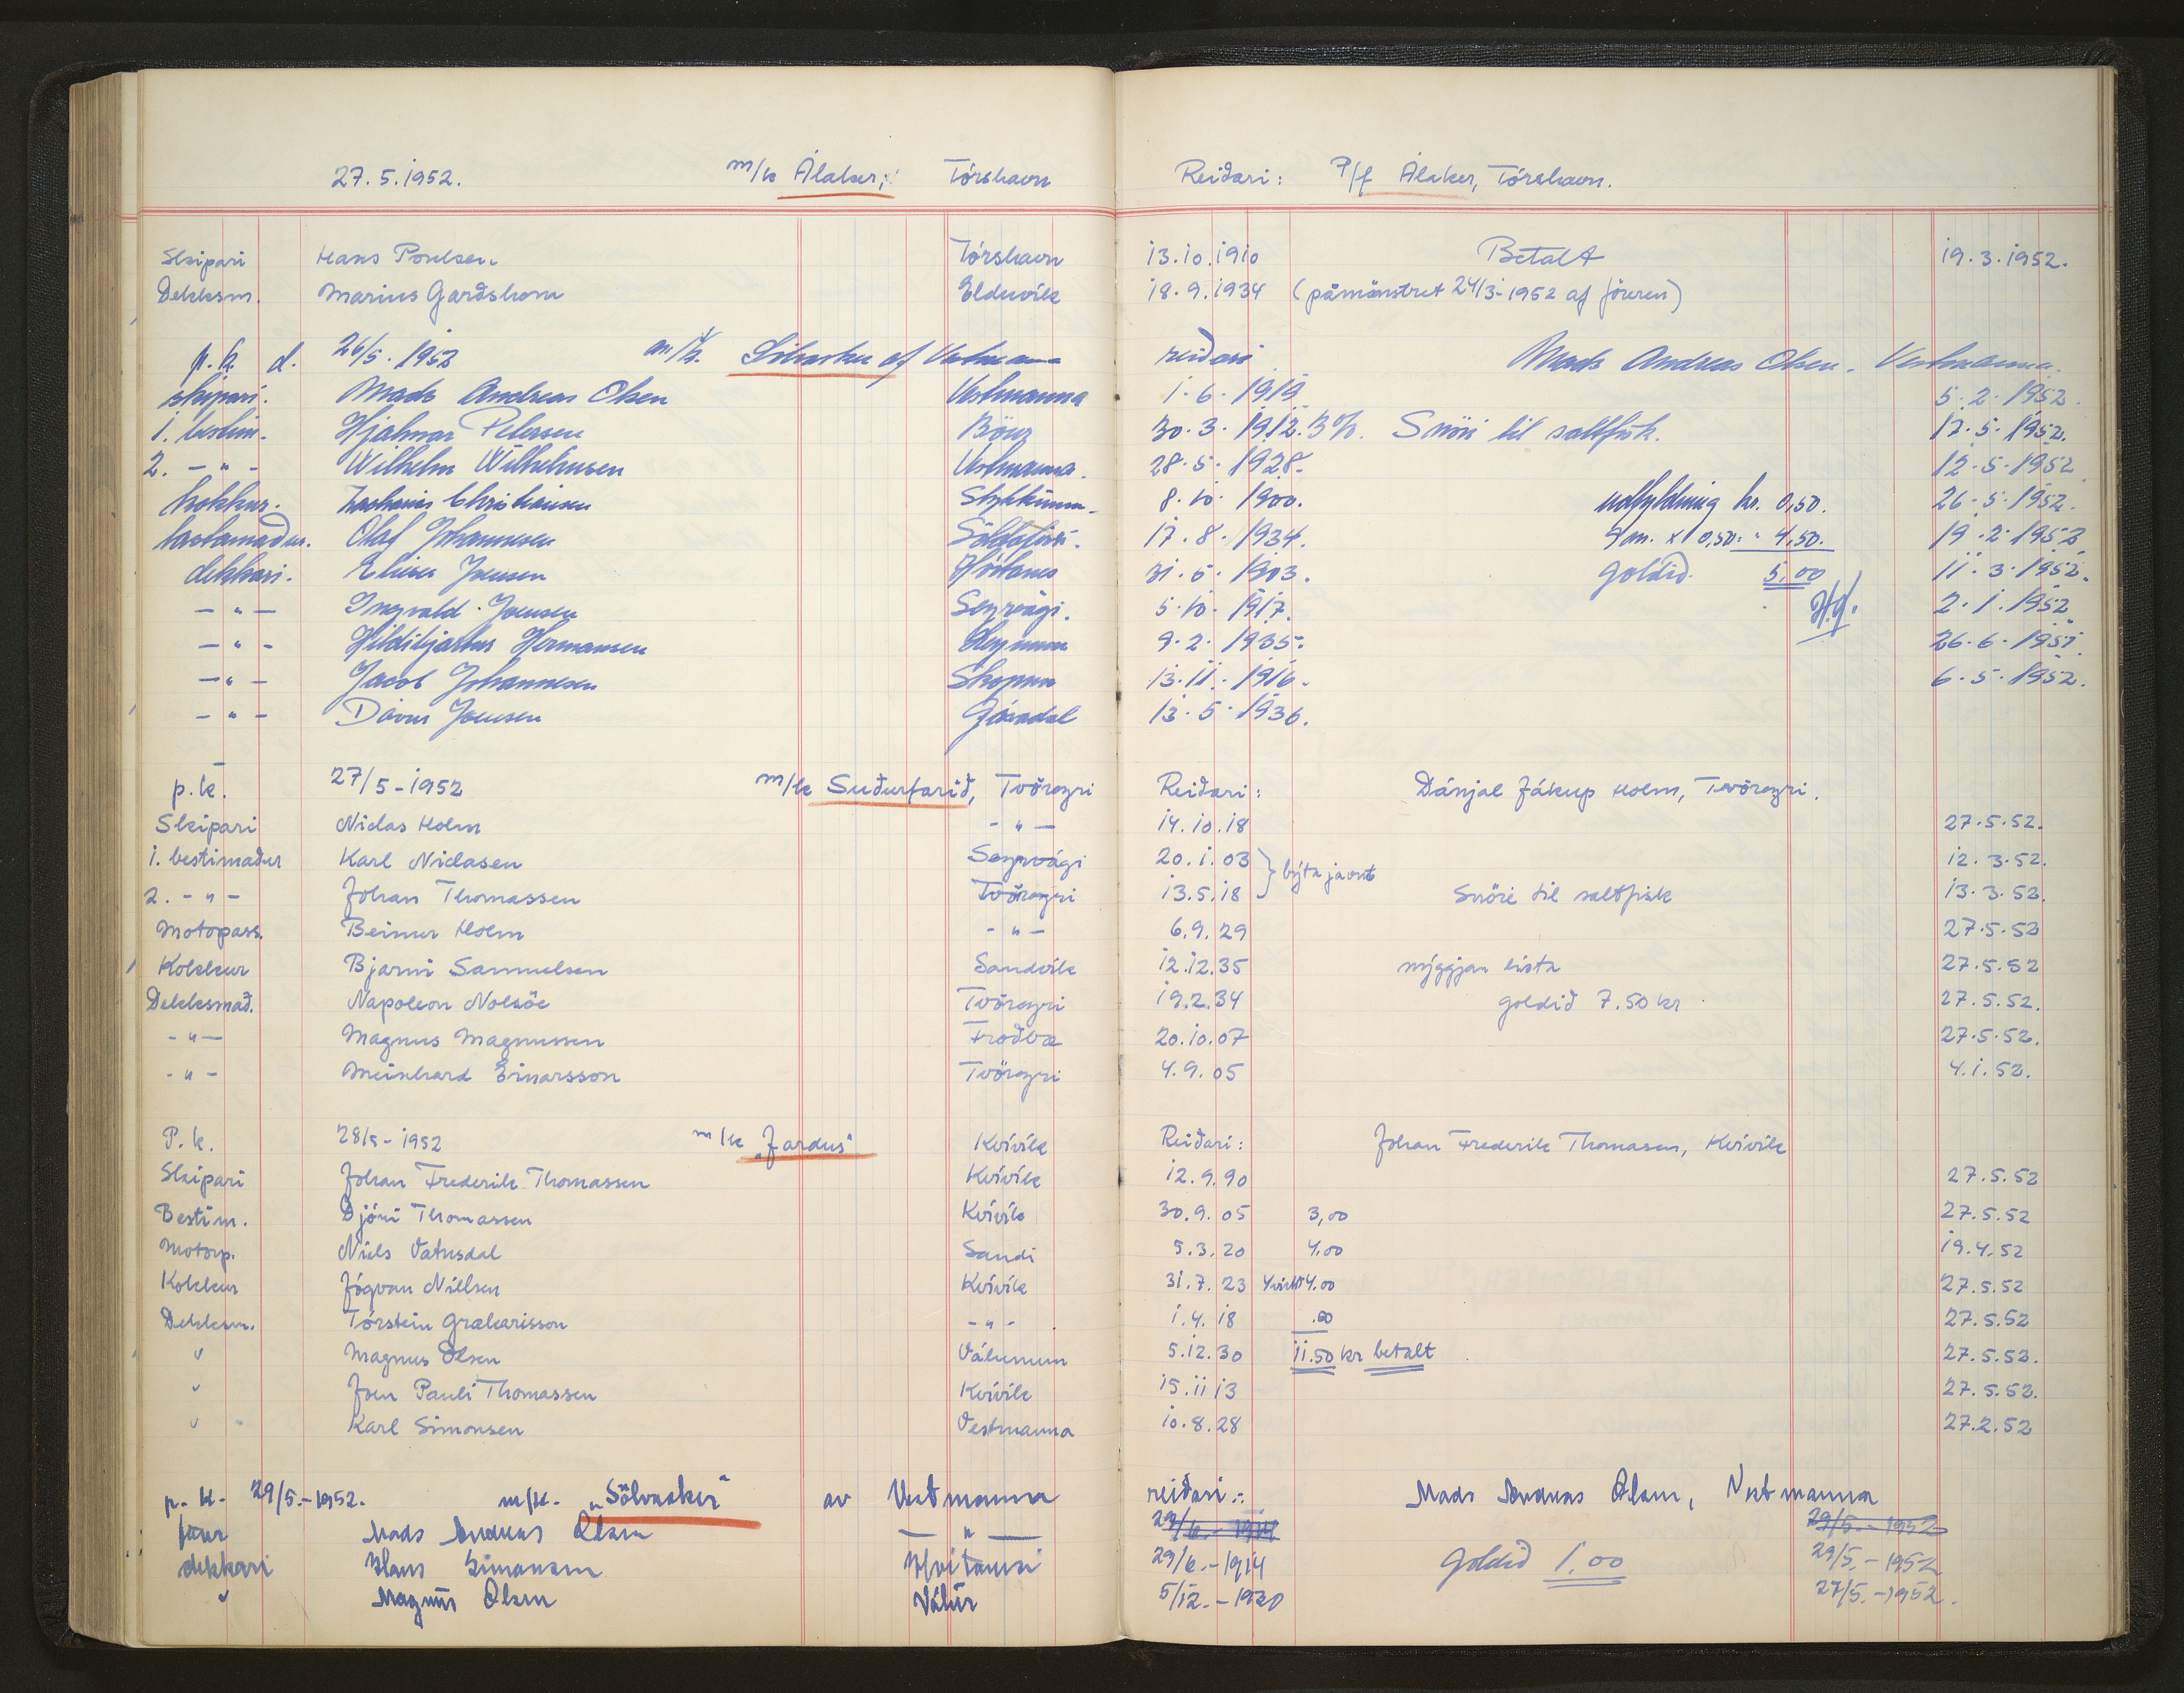 27.5.1952. m/k Álaker, Tórshavn Reiðari: P/f Álaker, Tórshavn.
Skipari Hans Poulsen Tórshavn 13.10.1910 Betalt 19.3.1952.
Dekksm. Marius Garðshorn Elduvík 18.9.1934 (påmønstret 24/3-1952 af föreren)
p.k. d. 26/5.1952 m/k. af reiðari Mads Andreas Olsen. Vestmanna.
skipari. Mads Andreas Olsen Vestmanna 1.6.1919 5.2.1952.
1. bestim. Hjalmar Petersen Böur 30.3.1912. 30/5. Snöri til saltfisk. 17.5.1952.
2. -"- Wilhelm Wilhelmsen Vestmanna. 28.5.1928. 12.5.1952
kokkur. Zacharis Christiansen 8.10.1900. udfyldning kr. 0,50. 26.5.1952.
lastamaður. Olaf Johannesen 17.8.1934. 9 m. x 0,50: " 4,50. 19.2.1952
dekkari. Elieser Joensen 31.5.1903. goldið. 5,00 11.3.1952.
-"- Ingvald Joensen Sörvági. 5.10.1917. 2.1.1952
-"- Hildibjartur Hermansen 9.2.1935. 26.6.1951.
-"- Jacob Johannesen Skopun 13.11.1916. 6.5.1952.
-"- Dávur Joensen Gásadal 13.5.1936.
p.k. 27/5-1952 m/k Suðurfarið, Tvöroyri Reiðari: Dánjal Jákup Holm, Tvöroyri.
Skipari Niclas Holm -"- 14.10.18 27.5.52.
1. bestimaður Karl Niclasen Sörvági 20.1.03 } býta javnt 12.3.52.
2. -"- Johan Thomassen Tvöroyri 13.5.18 Snöri til saltfisk 13.3.52.
Motorpass. Beinur Holm -"- 6.9.29 27.5.52
Kokkur Bjarni Samuelsen Sandvík 12.12.35 nýggjan lista 27.5.52
Dekksmað. Napoleon Nolsöe Tvöroyri 19.2.34 goldið 7.50 kr 27.5.52.
-"- Magnus Magnussen Froðba 20.10.07 27.5.52.
-"- Meinhard Einarsson Tvöroyri 4.9.05 4.1.52.
P.k. 28/5-1952 m/k "Jardus" Kvívík Reiðari: Johan Frederik Thomasen, Kvívík
Skipari Johan Frederik Thomassen Kvívík 12.9.90 27.5.52
Bestim. Djóni Thomassen Kvívík 30.9.05 3,00 27.5.52
Motorp. Niels Vatnsdal Sandi 5.3.20 4.00 19.4.52
Kokkur Jógvan Nillsen Kvívík 31.7.23 4.00 27.5.52
Dekksm. Tórstein Grækarisson -"- 1.4.18 .50 27.5.52
" Magnus Olsen Válinum 5.12.30 11.50 kr betalt 27.5.52.
" Joen Pauli Thomassen Kvívík 15.11 13 27.5.52.
" " Karl Simonsen Vestmanna 10.8.28 27.2.52
p.k. 29/5.-1952. m/k. "Sölvasker" av Vestmanna reiðari.: Mads Andreas Olsen, Vestmanna
förur Mads Andreas Olsen -"- 29/6.-1914 29/5.-1952
dekkari Hans Simonsen Hvítanesi 29/6.-1914 goldið 1.00 29/5.-1952
" Magnús Olsen Válur 5/12.-1930 27/5.-1952.